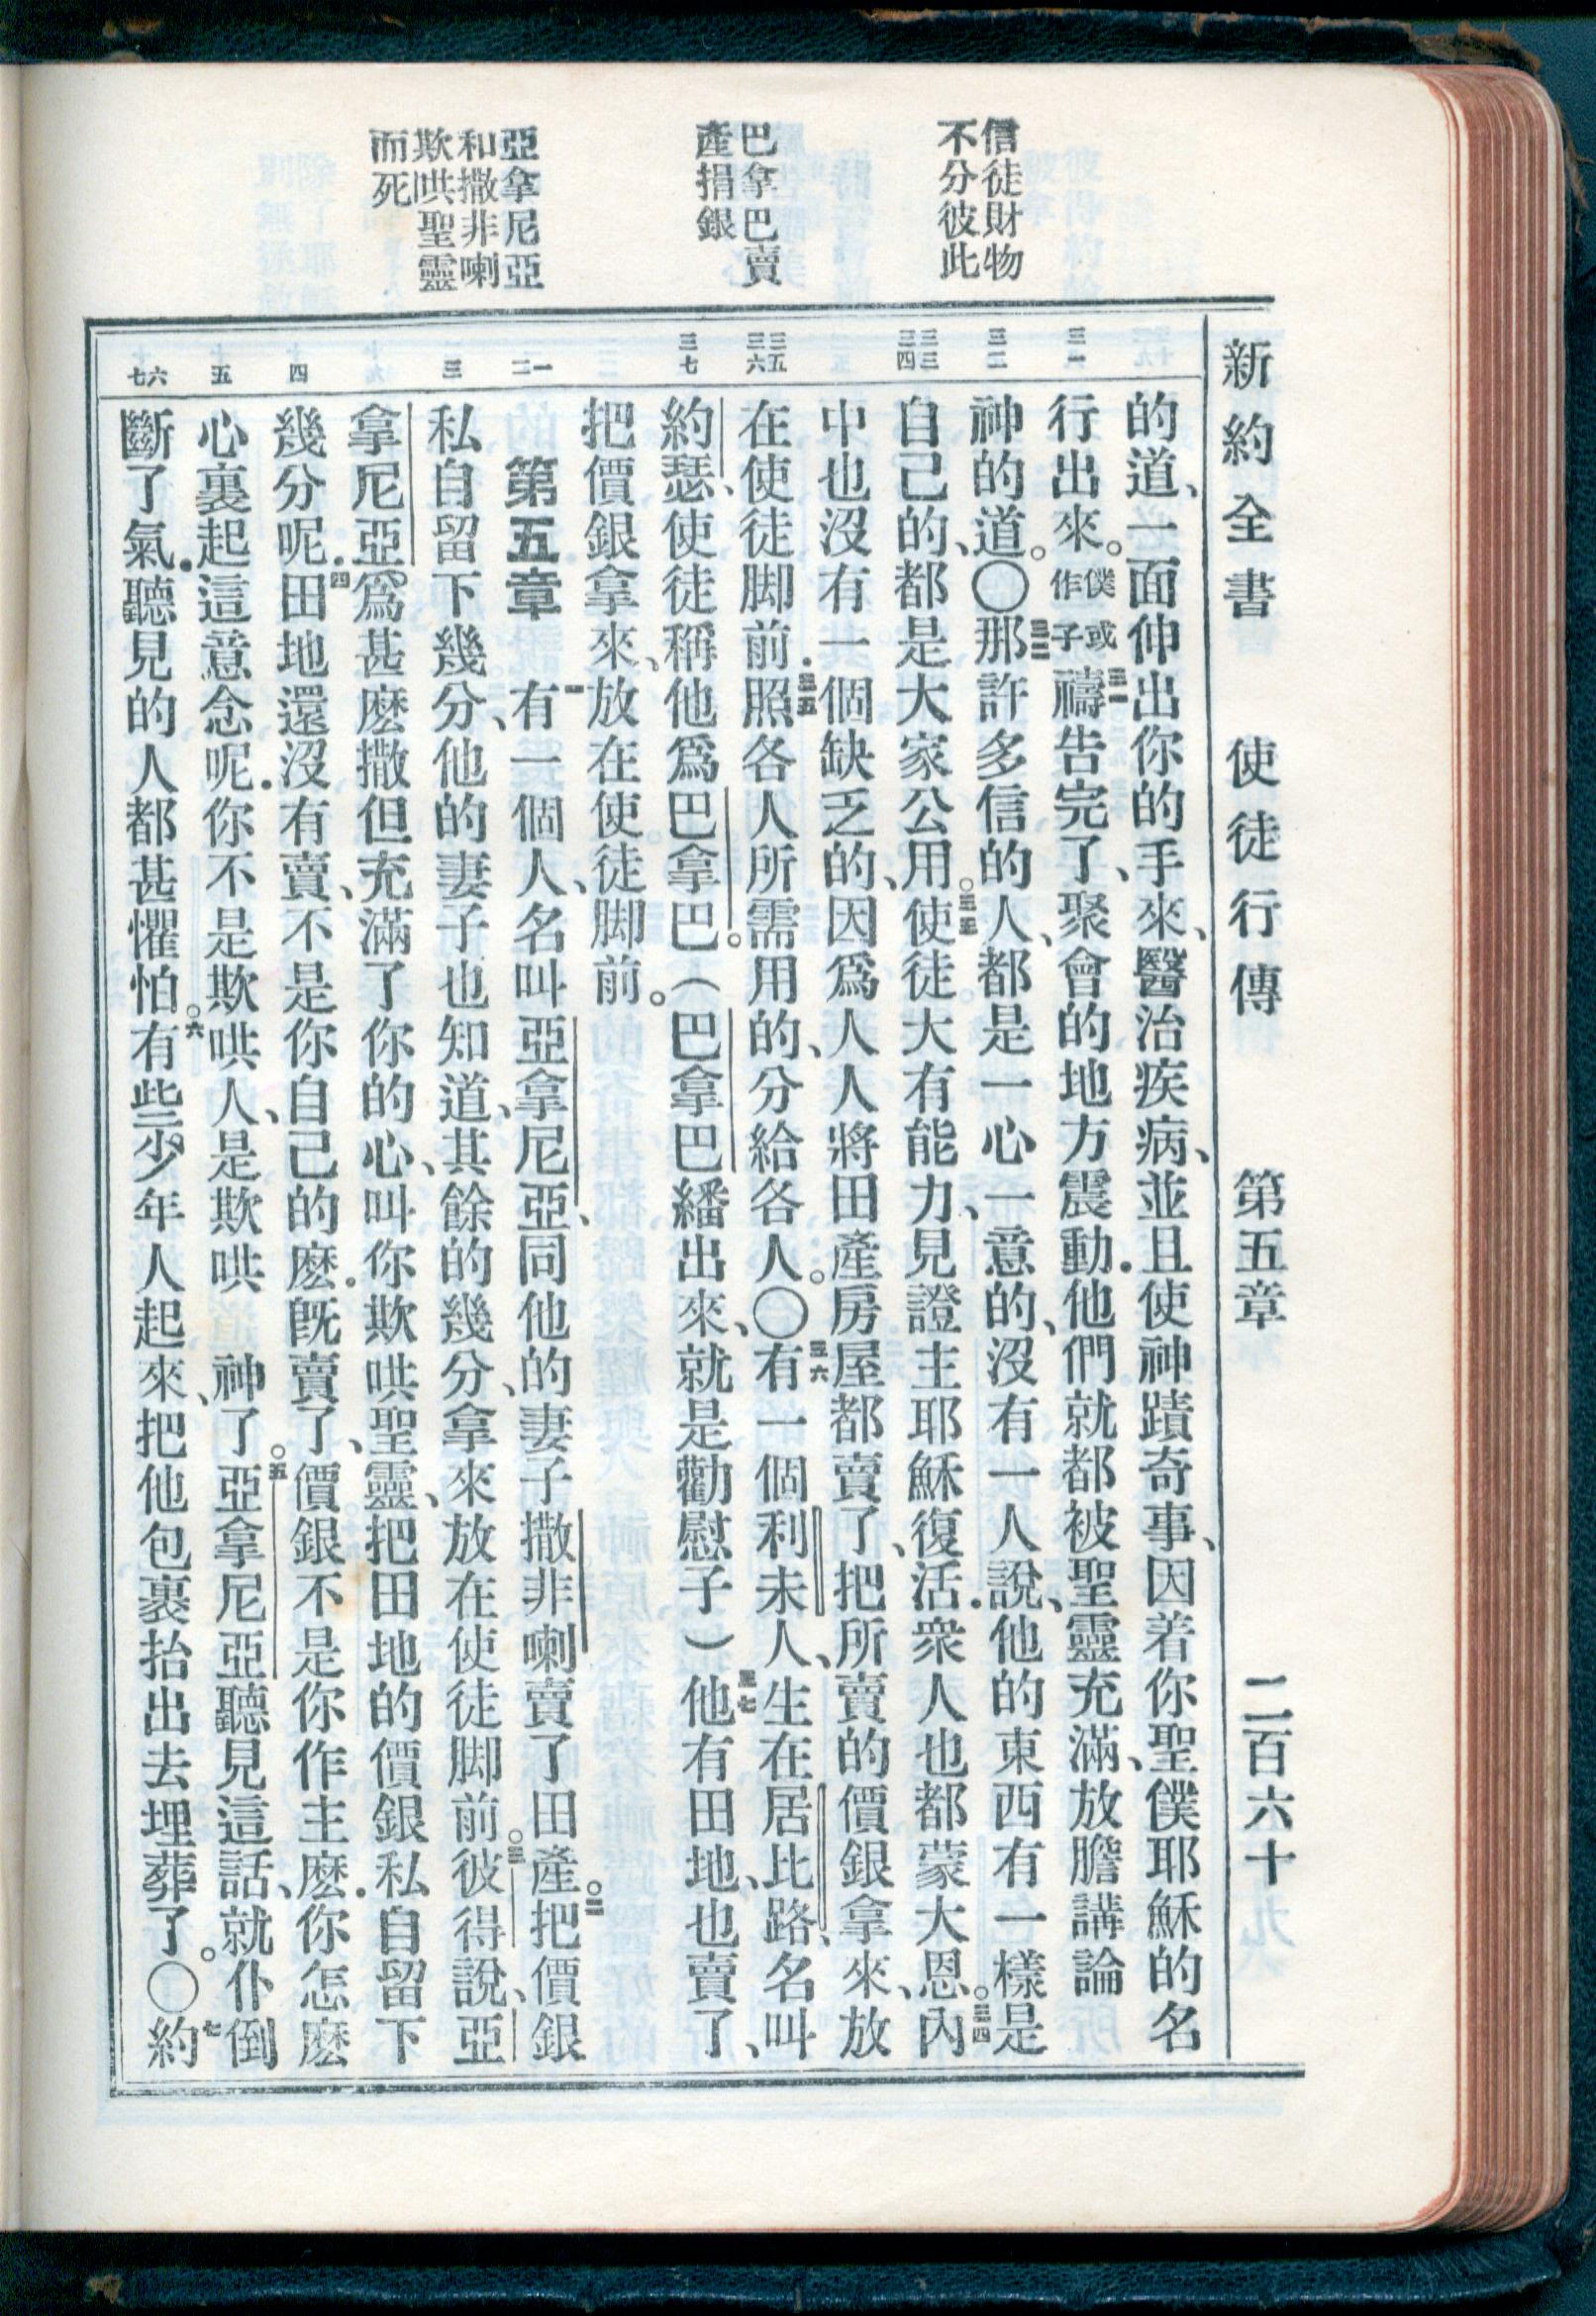 新約全書 使徒行傳 第五章 二百六十
信徒財物
不分彼此
巴拿巴賣
產捐銀
亞拿尼亞
和撒非喇
欺哄聖靈
而死
三一
三二
三三
三四
三五
三六
三七
一
二
三
四
五
六
七
的道、一面伸出你的手來、醫治疾病、並且使神蹟奇事、因着你聖僕耶穌的名
行出來。僕或作子三一禱告完了、聚會的地方震動.他們就都被聖靈充滿、放膽講論
神的道。〇三二那許多信的人、都是一心一意的、沒有一人說、他的東西有一樣是
自己的、都是大家公用。三三使徒大有能力、見證主耶穌復活.衆人也都蒙大恩。三四內
中也沒有一個缺乏的、因爲人人將田產房屋都賣了、把所賣的價銀拿來、放
在使徒脚前.三五照各人所需用的、分給各人。〇三六有一個利未人、生在居比路、名叫
約瑟、使徒稱他爲巴拿巴。（巴拿巴繙出來、就是勸慰子）三七他有田地、也賣了、
把價銀拿來、放在使徒脚前。
第五章 一有一個人、名叫亞拿尼亞、同他的妻子撒非喇賣了田產。二把價銀
私自留下幾分、他的妻子也知道、其餘的幾分、拿來放在使徒脚前。三彼得說、亞
拿尼亞、爲甚麽撒但充滿了你的心、叫你欺哄聖靈、把田地的價銀私自留下
幾分呢.四田地還沒有賣、不是你自己的麽。旣賣了、價銀不是你作主麽.你怎麽
心裏起這意念呢.你不是欺哄人、是欺哄 神了。五亞拿尼亞聽見這話、就仆倒
斷了氣.聽見的人都甚懼怕。六有些少年人起來、把他包裹抬出去埋葬了。〇七約